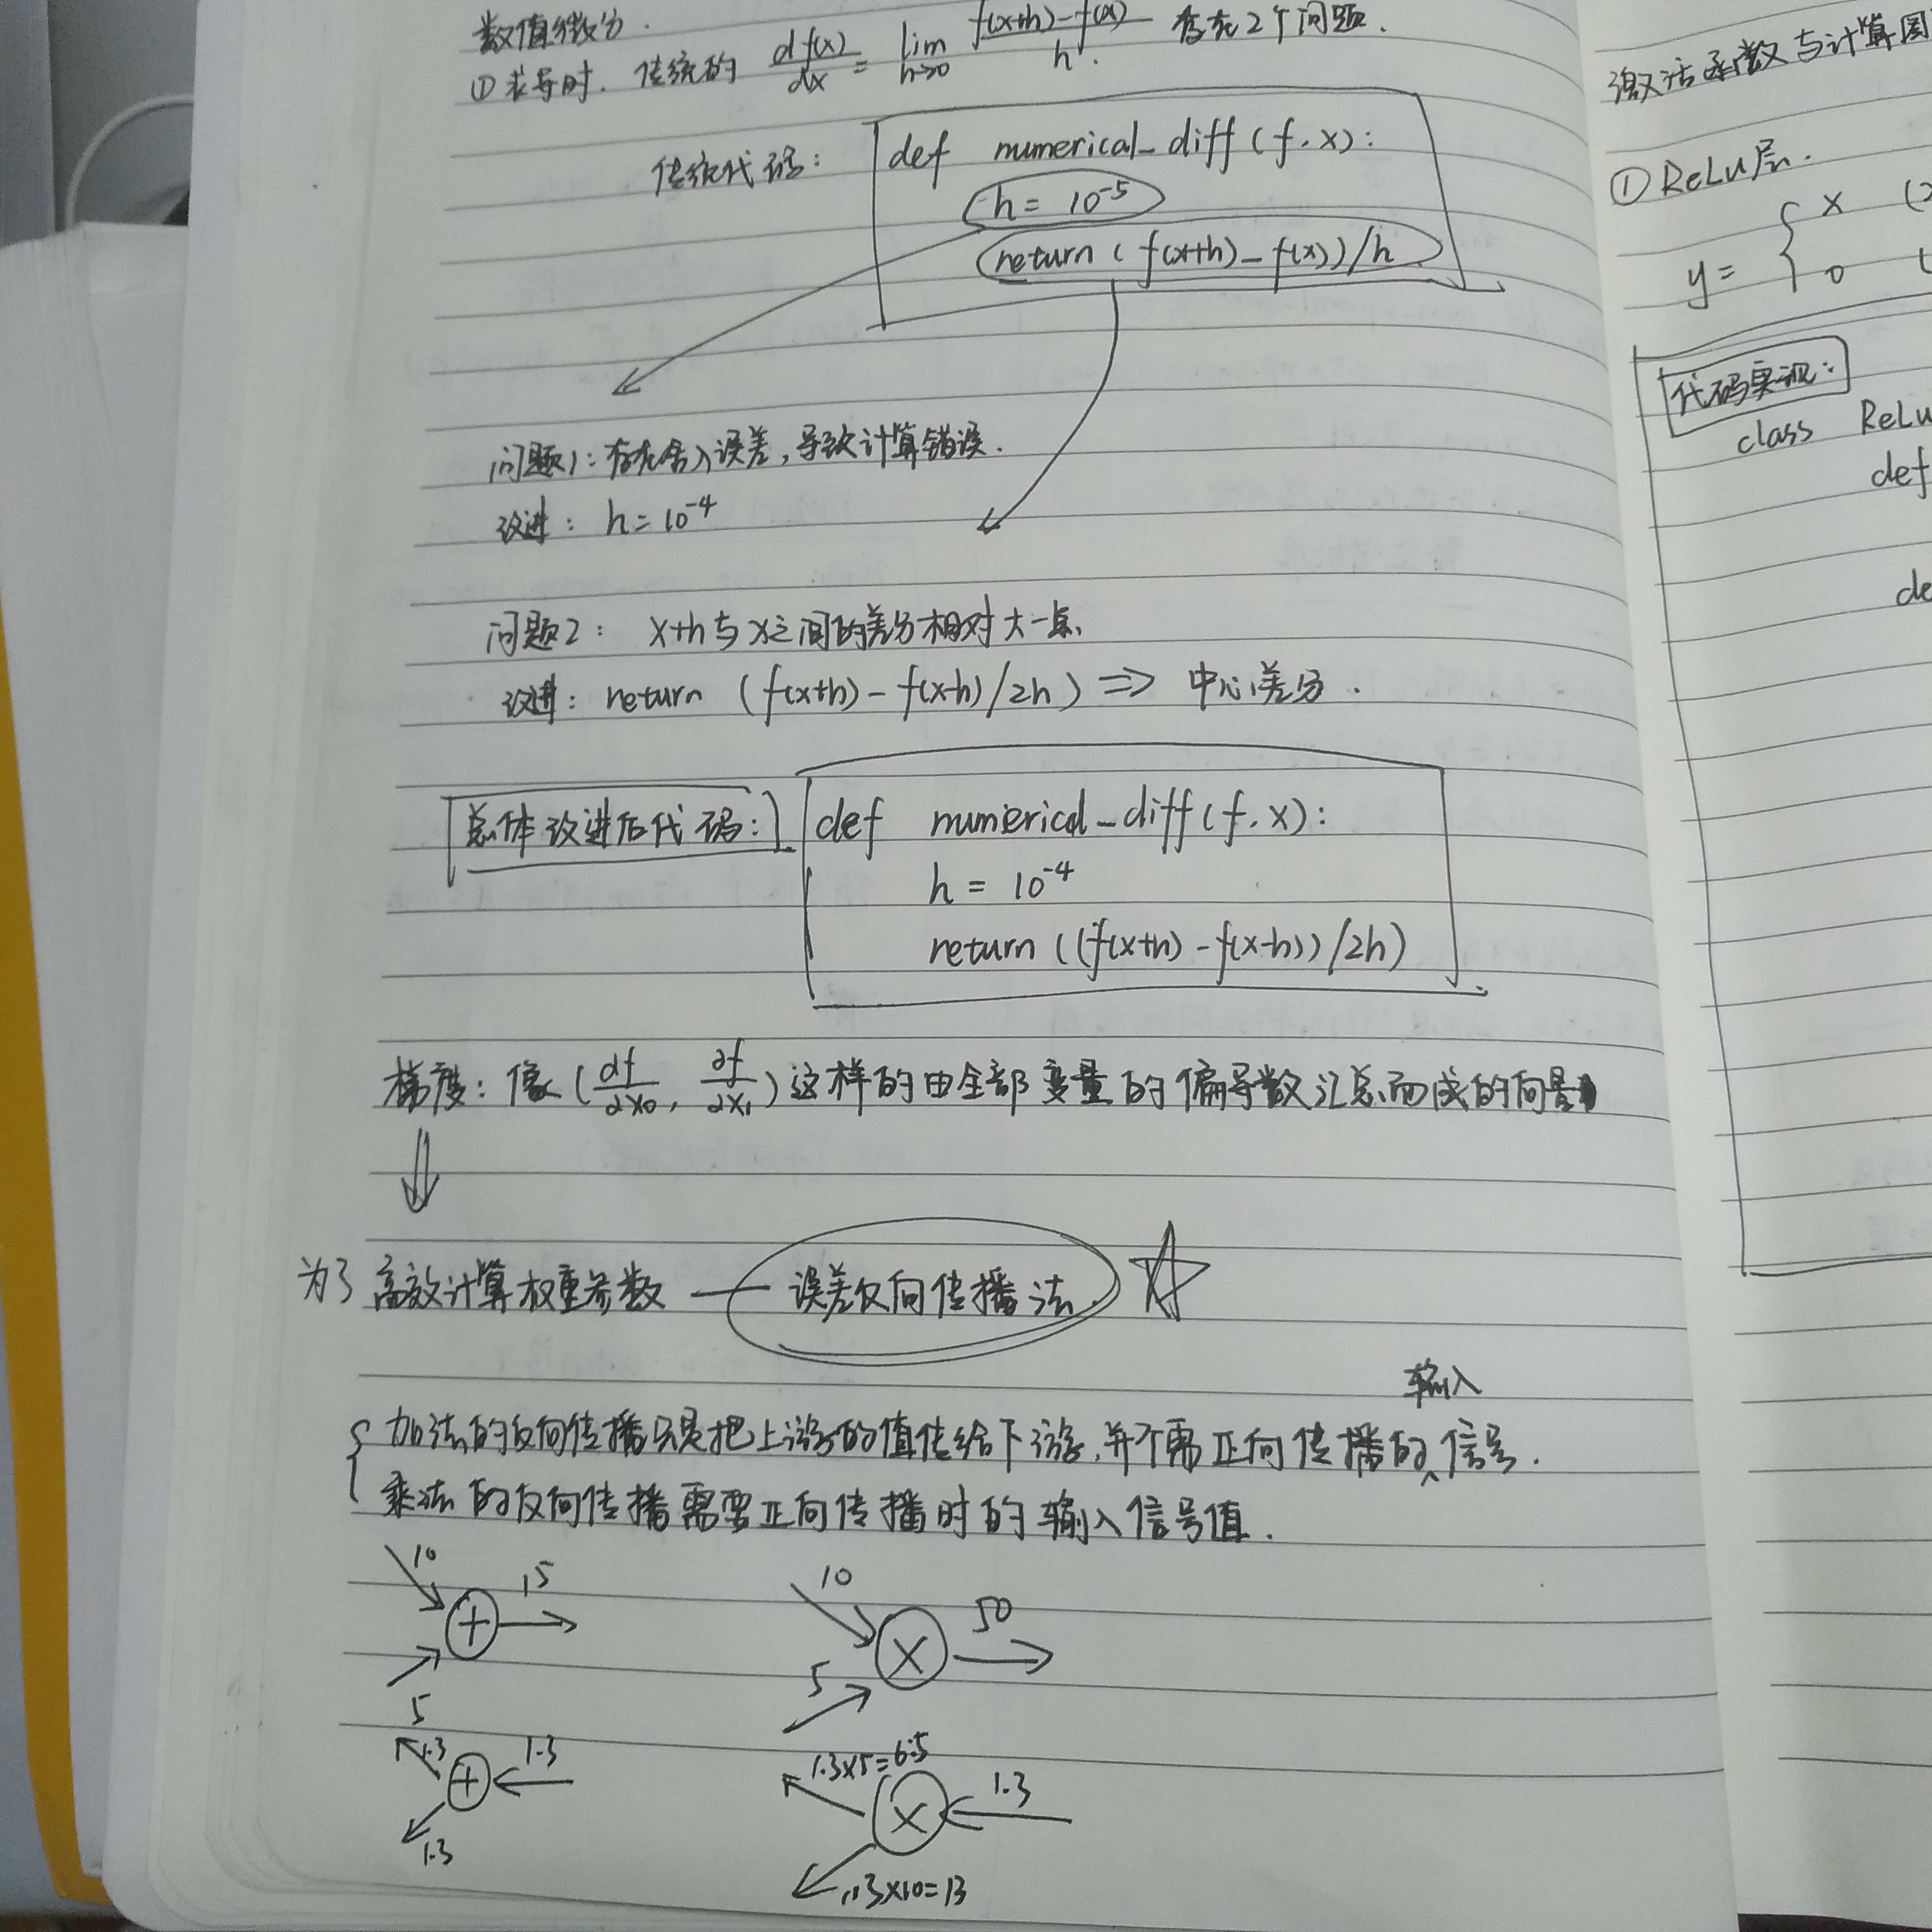 数值微分.
①求导时. 传统的 df(x)/dx = lim h→0 f(x+h)-f(x)/h. 存在2个问题.
传统代码:
def numerical_diff(f,x):
h = 10⁻⁵
return (f(x+h)-f(x))/h
问题1: 存在舍入误差,导致计算错误.
改进: h=10⁻⁴
问题2: x+h与x之间的差分相对大一点
改进: return (f(x+h)-f(x-h)/2h) => 中心差分.
总体改进后代码:
def numerical_diff(f,x):
h = 10⁻⁴
return ((f(x+h)-f(x-h))/2h)
梯度: 像(∂f/∂x₀, ∂f/∂x₁)这样的由全部变量的偏导数汇总而成的向量
为了高效计算权重参数 — 误差反向传播法. ☆
加法的反向传播只是把上游的值传给下游,并不需正向传播的输入信号.
乘法的反向传播需要正向传播时的输入信号值.
10
+ 15
5
10
× 50
5
1.3
+ 1.3
1.3
1.3×5=6.5
× 1.3
1.3×10=13
激活函数与计算图
① ReLu层.
y= { x (
0 (
代码实现:
class ReLu
def
de